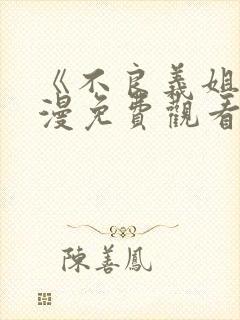 《不良義姐
漫免費觀看
陳善鳳